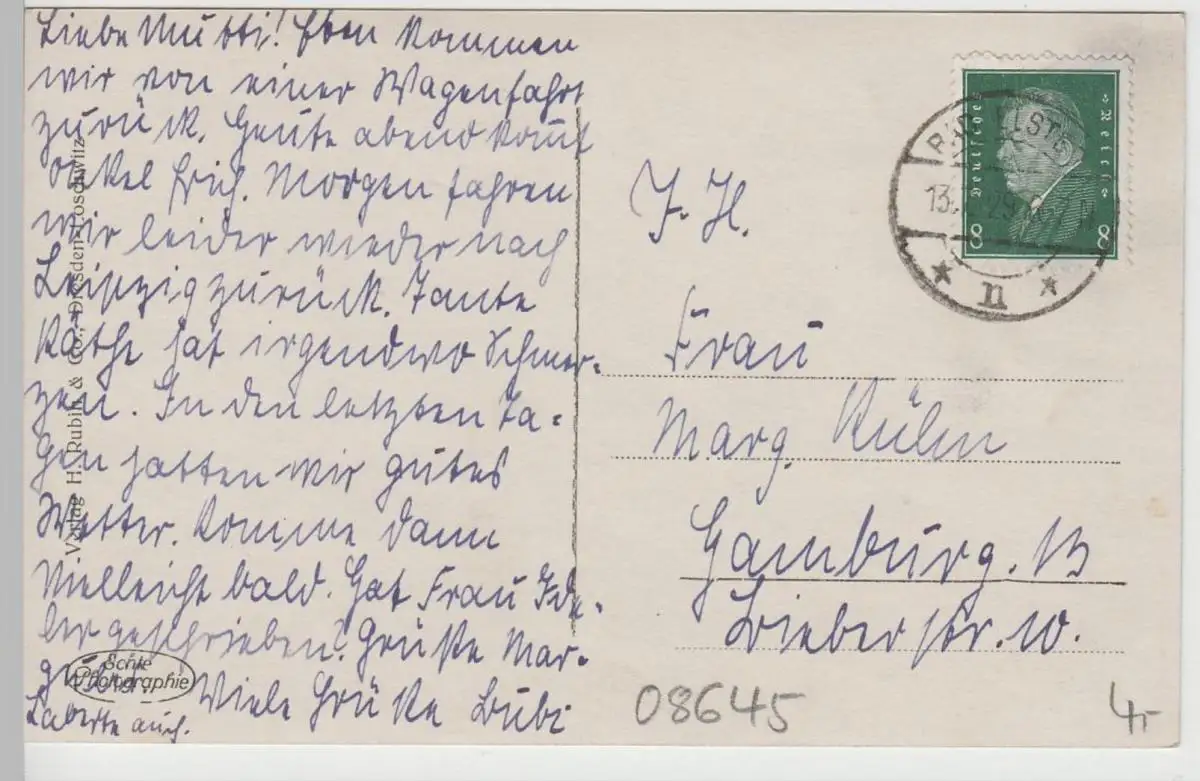 Liebe Mutti! Eben kommen
wir von einer Wagenfahrt
zurück. Heute abend kommt
Onkel Erich. Morgen fahren
wir leider wieder nach
Leipzig zurück. Tante
Käthe hat irgendwo Schmer-
zen. In den letzten Ta-
gen hatten wir gutes
Wetter. Komme dann
vielleicht bald. Hat Frau Ide-
ler geschrieben? Grüße Mar-
Viele Grüße Bubi
auch.
Verlag H. Rubin & Co., Dresden-Loschwitz
Photographie
Deutsches Reich
8 8
13. 29
n
F. H.
Frau
Marg.
Hamburg. 13
Bieberstr. 10.
08645
4,-